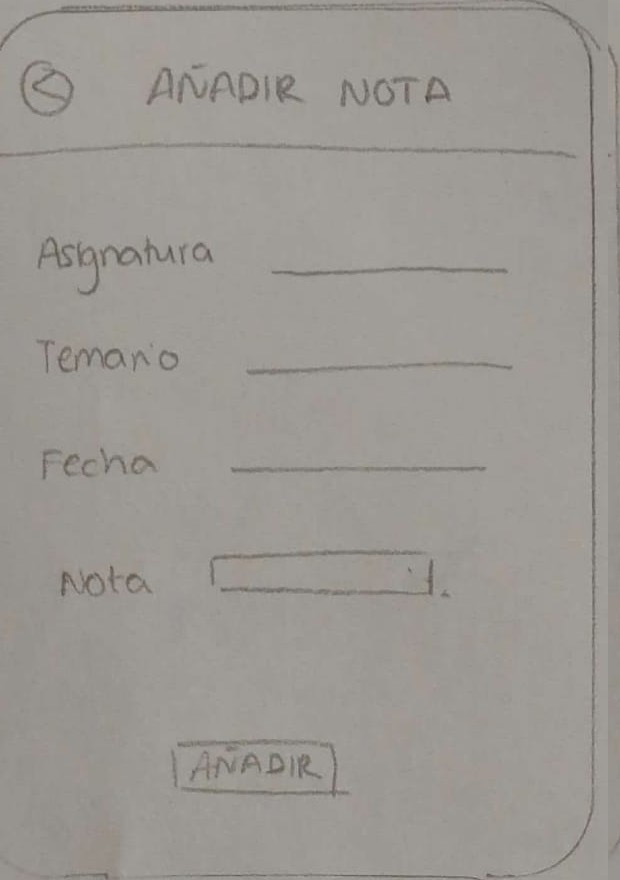 AÑADIR NOTA
Asignatura
Temario
Fecha
Nota
AÑADIR